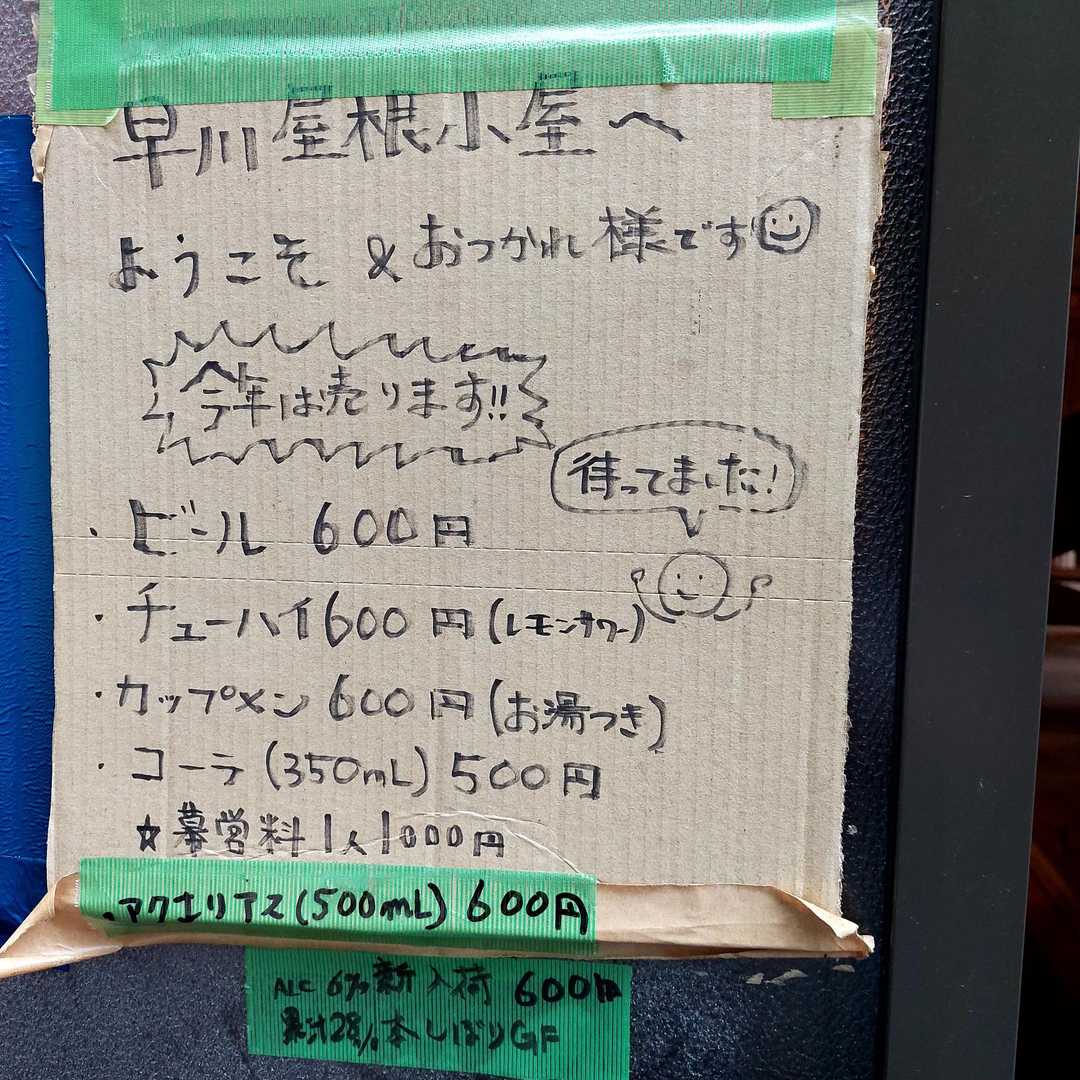 早川屋根小屋へ
ようこそ & おつかれ様です
今年は売ります!!
待ってました!
・ビール 600円
・チューハイ600円(レモンサワー)
・カップメン 600円(お湯つき)
・コーラ(350mL) 500円
☆幕営料1人1000円
・アクエリアス(500mL) 600円
ALC 6% 新入荷 600円
果汁28% 本しぼりGF